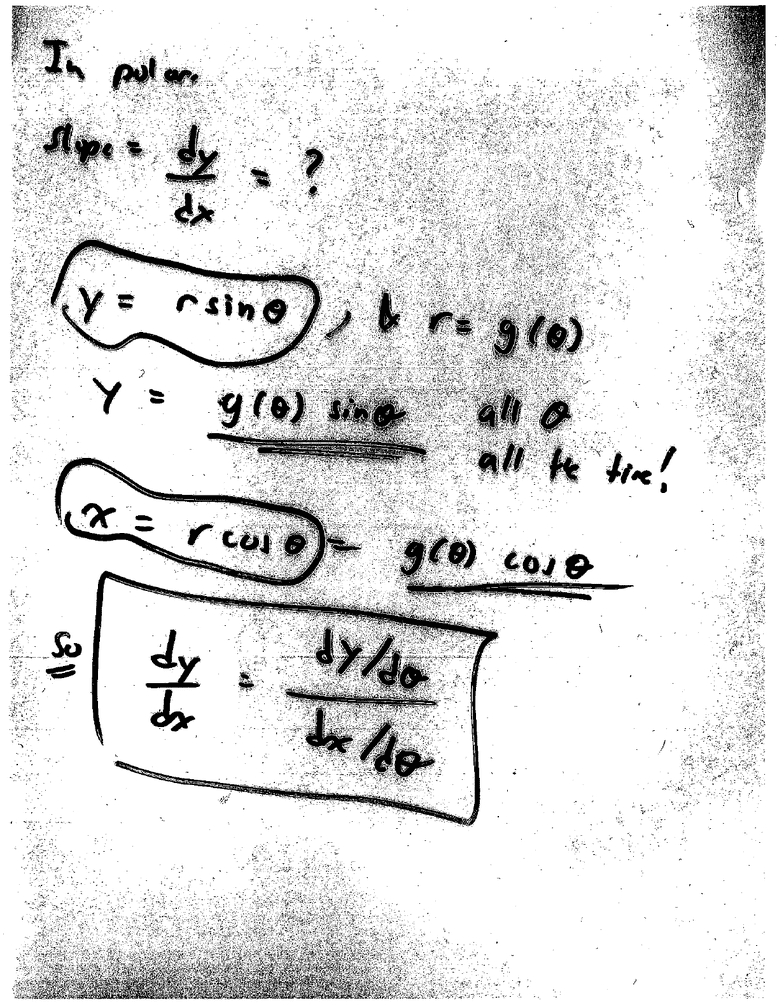 In polar.
slope = dy/dx = ?
y = r sin θ, & r = g(θ)
y = g(θ) sin θ all θ
all the time!
x = r cos θ = g(θ) cos θ
So dy/dx = (dy/dθ)/(dx/dθ)